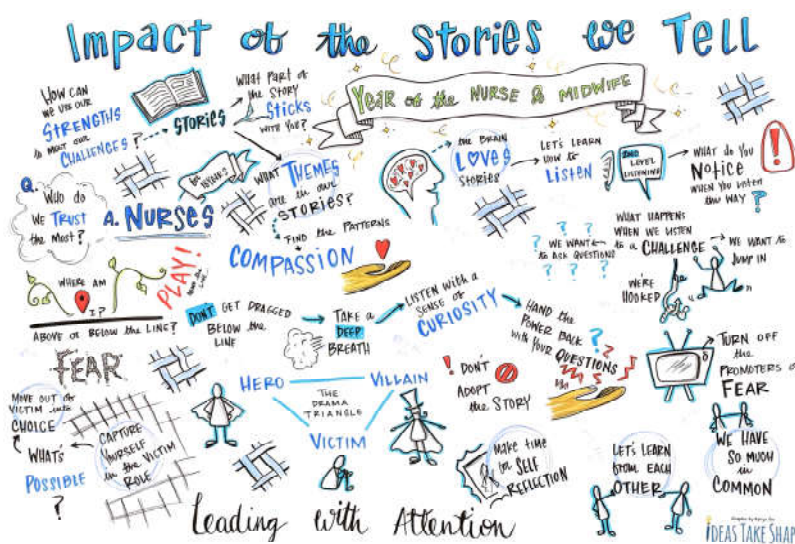 Impact of the Stories we Tell
Year of the NURSE & MIDWIFE
HOW CAN
WE USE OUR
STRENGTHS
to meet our
CHALLENGES?
STORIES
WHAT PART of
the STORY
STICKS
WITH YOU?
Q.
WHO DO
WE TRUST
the MOST?
A. NURSES
WHAT THEMES
are in our
STORIES?
FIND the PATTERNS
COMPASSION
the BRAIN
LOVES
STORIES
LET'S LEARN
HOW to
LISTEN
2ND
LEVEL
LISTENING
WHAT do YOU
NOTICE
WHEN YOU listen
this WAY?
WHAT HAPPENS
WHEN WE LISTEN
to a CHALLENGE
WE WANT
to ASK QUESTIONS
WE WANT to
JUMP IN
WE'RE
HOOKED
WHERE AM
I?
ABOVE or BELOW the LINE?
PLAY!
DON'T GET DRAGGED
BELOW the
LINE
TAKE a
DEEP
BREATH
LISTEN WITH a
SENSE of
CURIOSITY
HAND the
POWER BACK
with YOUR QUESTIONS
TURN OFF
the
PROMOTERS of
FEAR
FEAR
MOVE OUT of
VICTIM into
CHOICE
WHAT'S
POSSIBLE
?
CAPTURE
YOURSELF
in the VICTIM
ROLE
HERO
VILLAIN
THE
DRAMA
TRIANGLE
VICTIM
! DON'T
ADOPT
the STORY
Make time
for SELF
REFLECTION
LET'S LEARN
from EACH
OTHER
WE HAVE
SO MUCH
in
COMMON
Leading with Attention
IDEAS TAKE SHAP